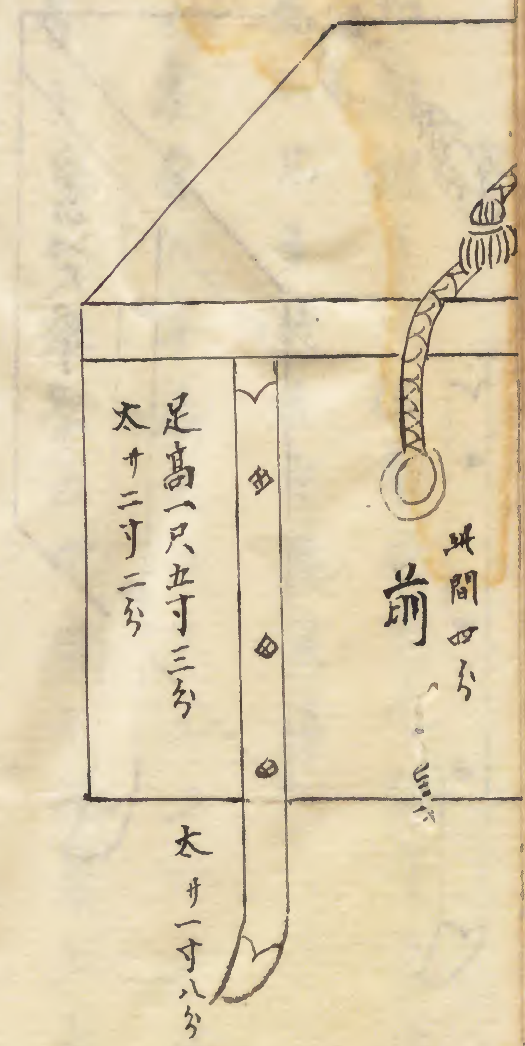 間四分
前
足高一尺五寸三分
太サ二寸二分
太サ一寸八分